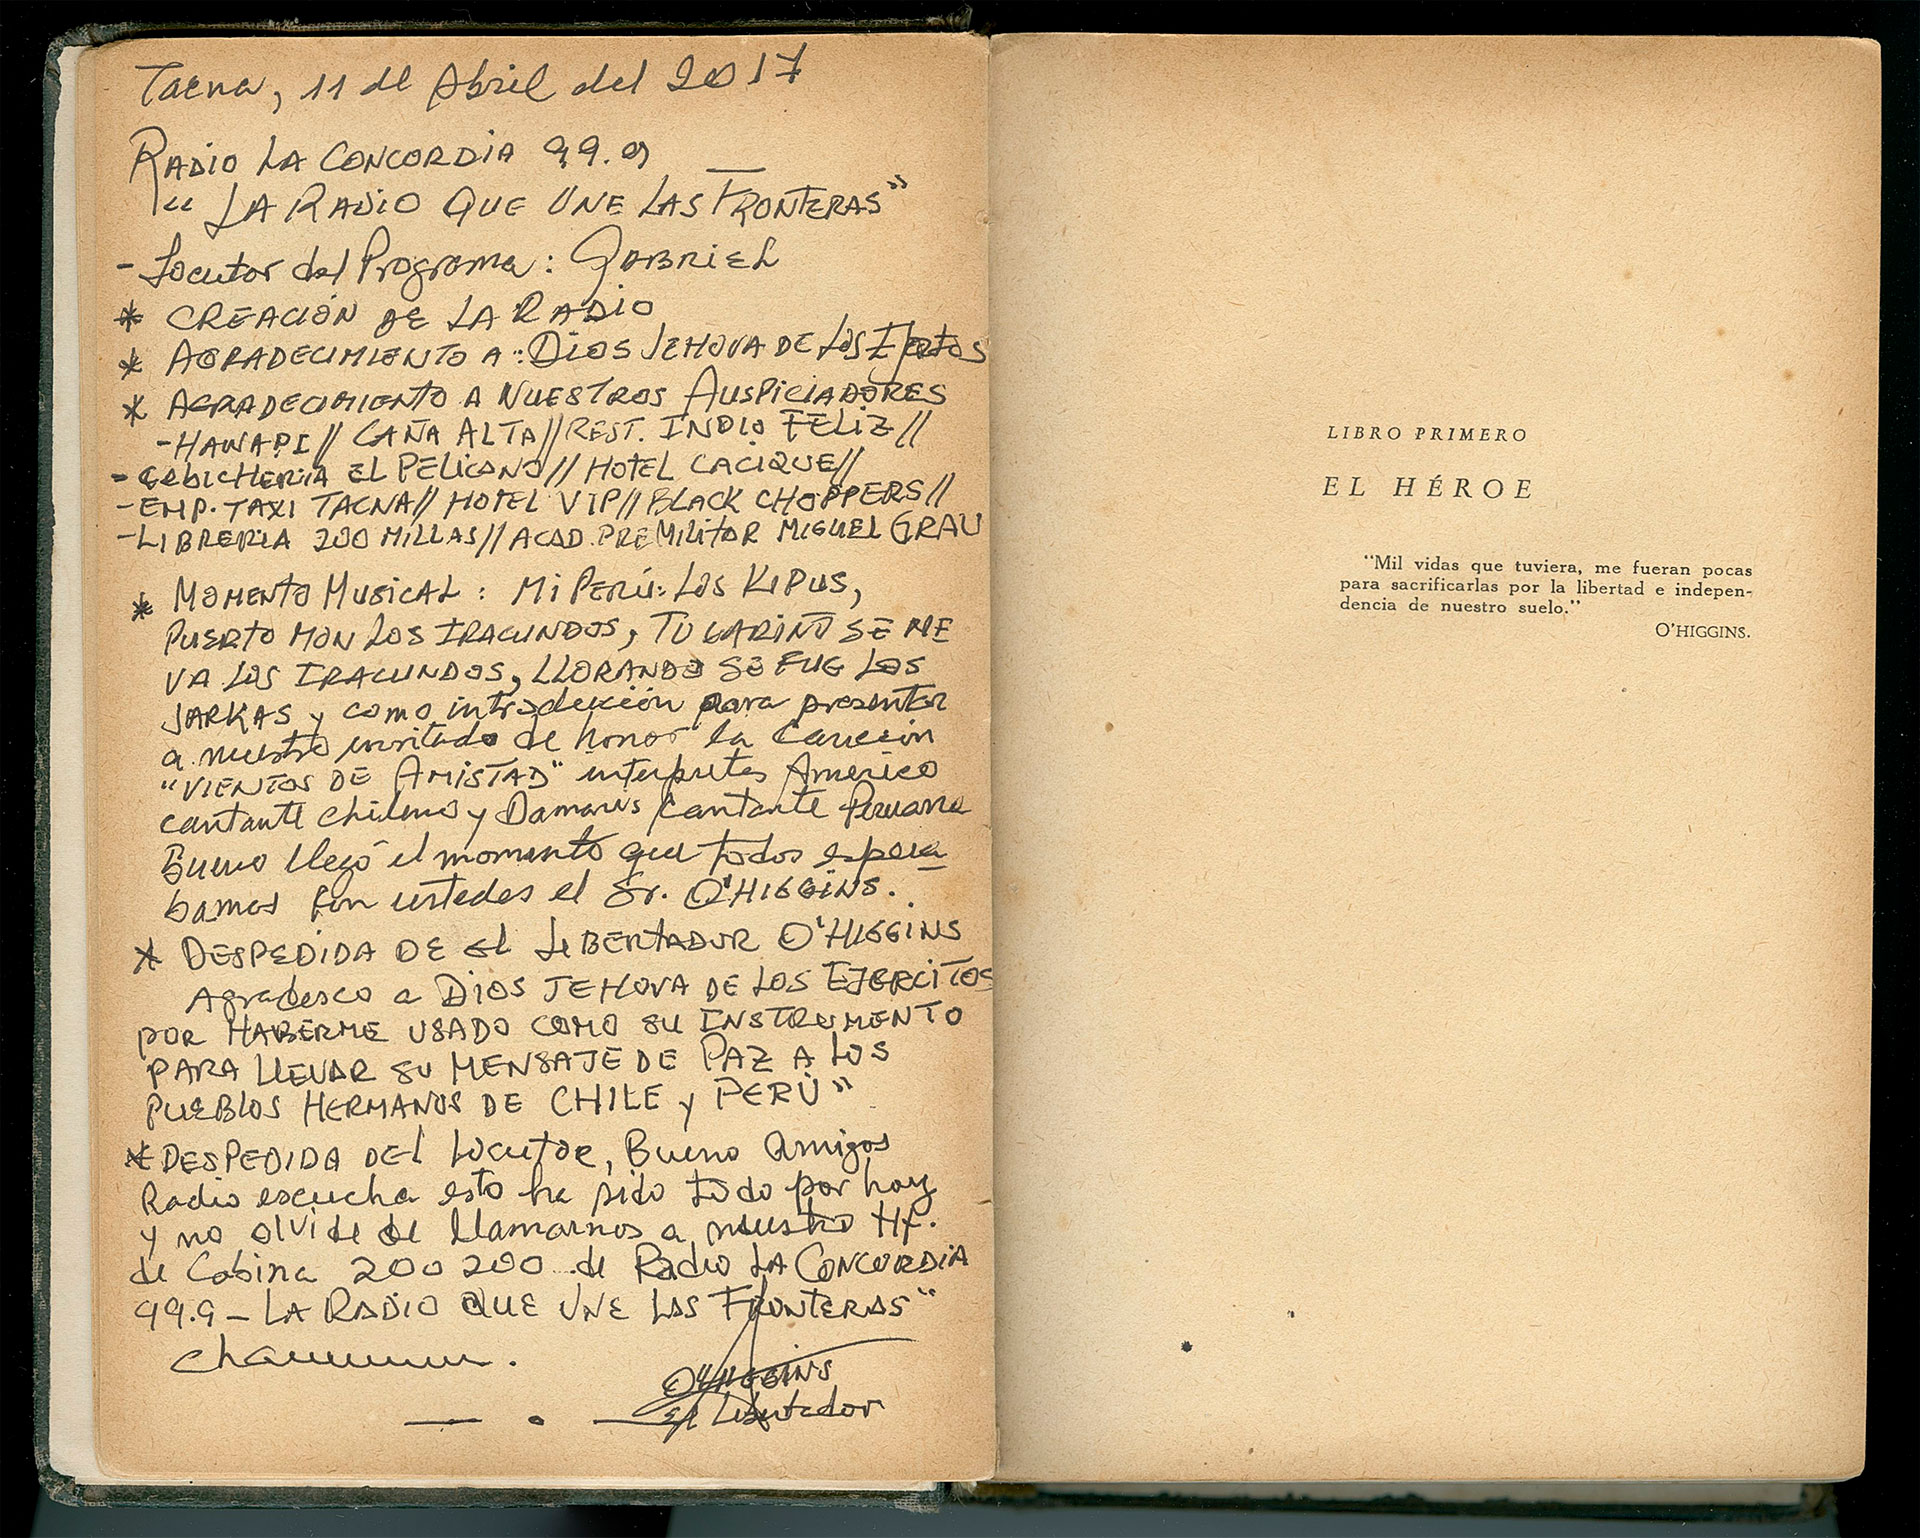 Tacna, 11 de Abril del 2017
RADIO LA CONCORDIA 99.9
"LA RADIO QUE UNE LAS FRONTERAS"
- Locutor del Programa: GABRIEL
* CREACIÓN DE LA RADIO
* AGRADECIMIENTO A: DIOS JEHOVA DE LOS
* AGRADECIMIENTO A NUESTROS AUSPICIADORES
- HAWAPI // CAÑA ALTA // REST. INDIO FELIZ //
- CEBICHERIA EL PELICANO // HOTEL CACIQUE //
- EMP. TAXI TACNA // HOTEL VIP // BLACK CHOPPERS //
- LIBRERIA 200 MILLAS // ACAD. PREMILITAR MIGUEL GRAU
* MOMENTO MUSICAL: MI PERÚ: LOS KIPUS,
PUERTO MON LOS IRACUNDOS, TU CARIÑO SE ME
VA LOS IRACUNDOS, LLORANDO SE FUE LOS
JARKAS y como introducción para presentar
a nuestro invitado de honor la canción
"VIENTOS DE AMISTAD" interpretes Americo
cantante chileno y Damaris cantante Peruana
Bueno llegó el momento que todos espera
bamos con ustedes el Sr. O'HIGGINS.
* DESPEDIDA DE El LIBERTADOR O'HIGGINS
Agradesco a DIOS JEHOVA DE LOS EJERCITOS
POR HABERME USADO COMO SU INSTRUMENTO
PARA LLEVAR SU MENSAJE DE PAZ A LOS
PUEBLOS HERMANOS DE CHILE y PERÚ"
* DESPEDIDA DEL Locutor, Bueno Amigos
Radio escucha esto ha sido todo por hoy
y no olvide de llamarnos a nuestro
de Cabina 200200 de Radio LA CONCORDIA
99.9 - LA RADIO QUE UNE LAS FRONTERAS"
chauuuuuuu.
O'HIGGINS
El Libertador
LIBRO PRIMERO
EL HÉROE
"Mil vidas que tuviera, me fueran pocas
para sacrificarlas por la libertad e indepen-
dencia de nuestro suelo."
O'HIGGINS.